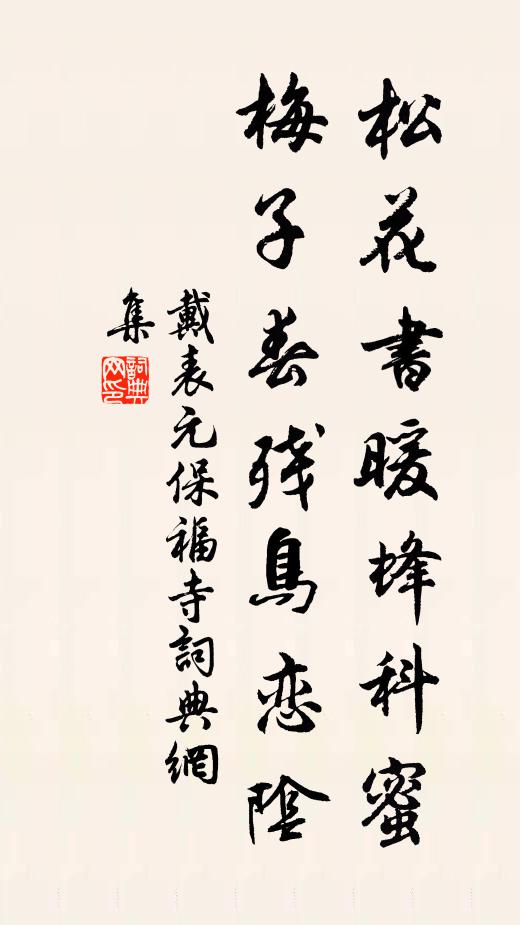 松花書暖蜂科蜜
梅子春残鳥恋陰
戴表元保福寺詞典網
集
詞典
网印